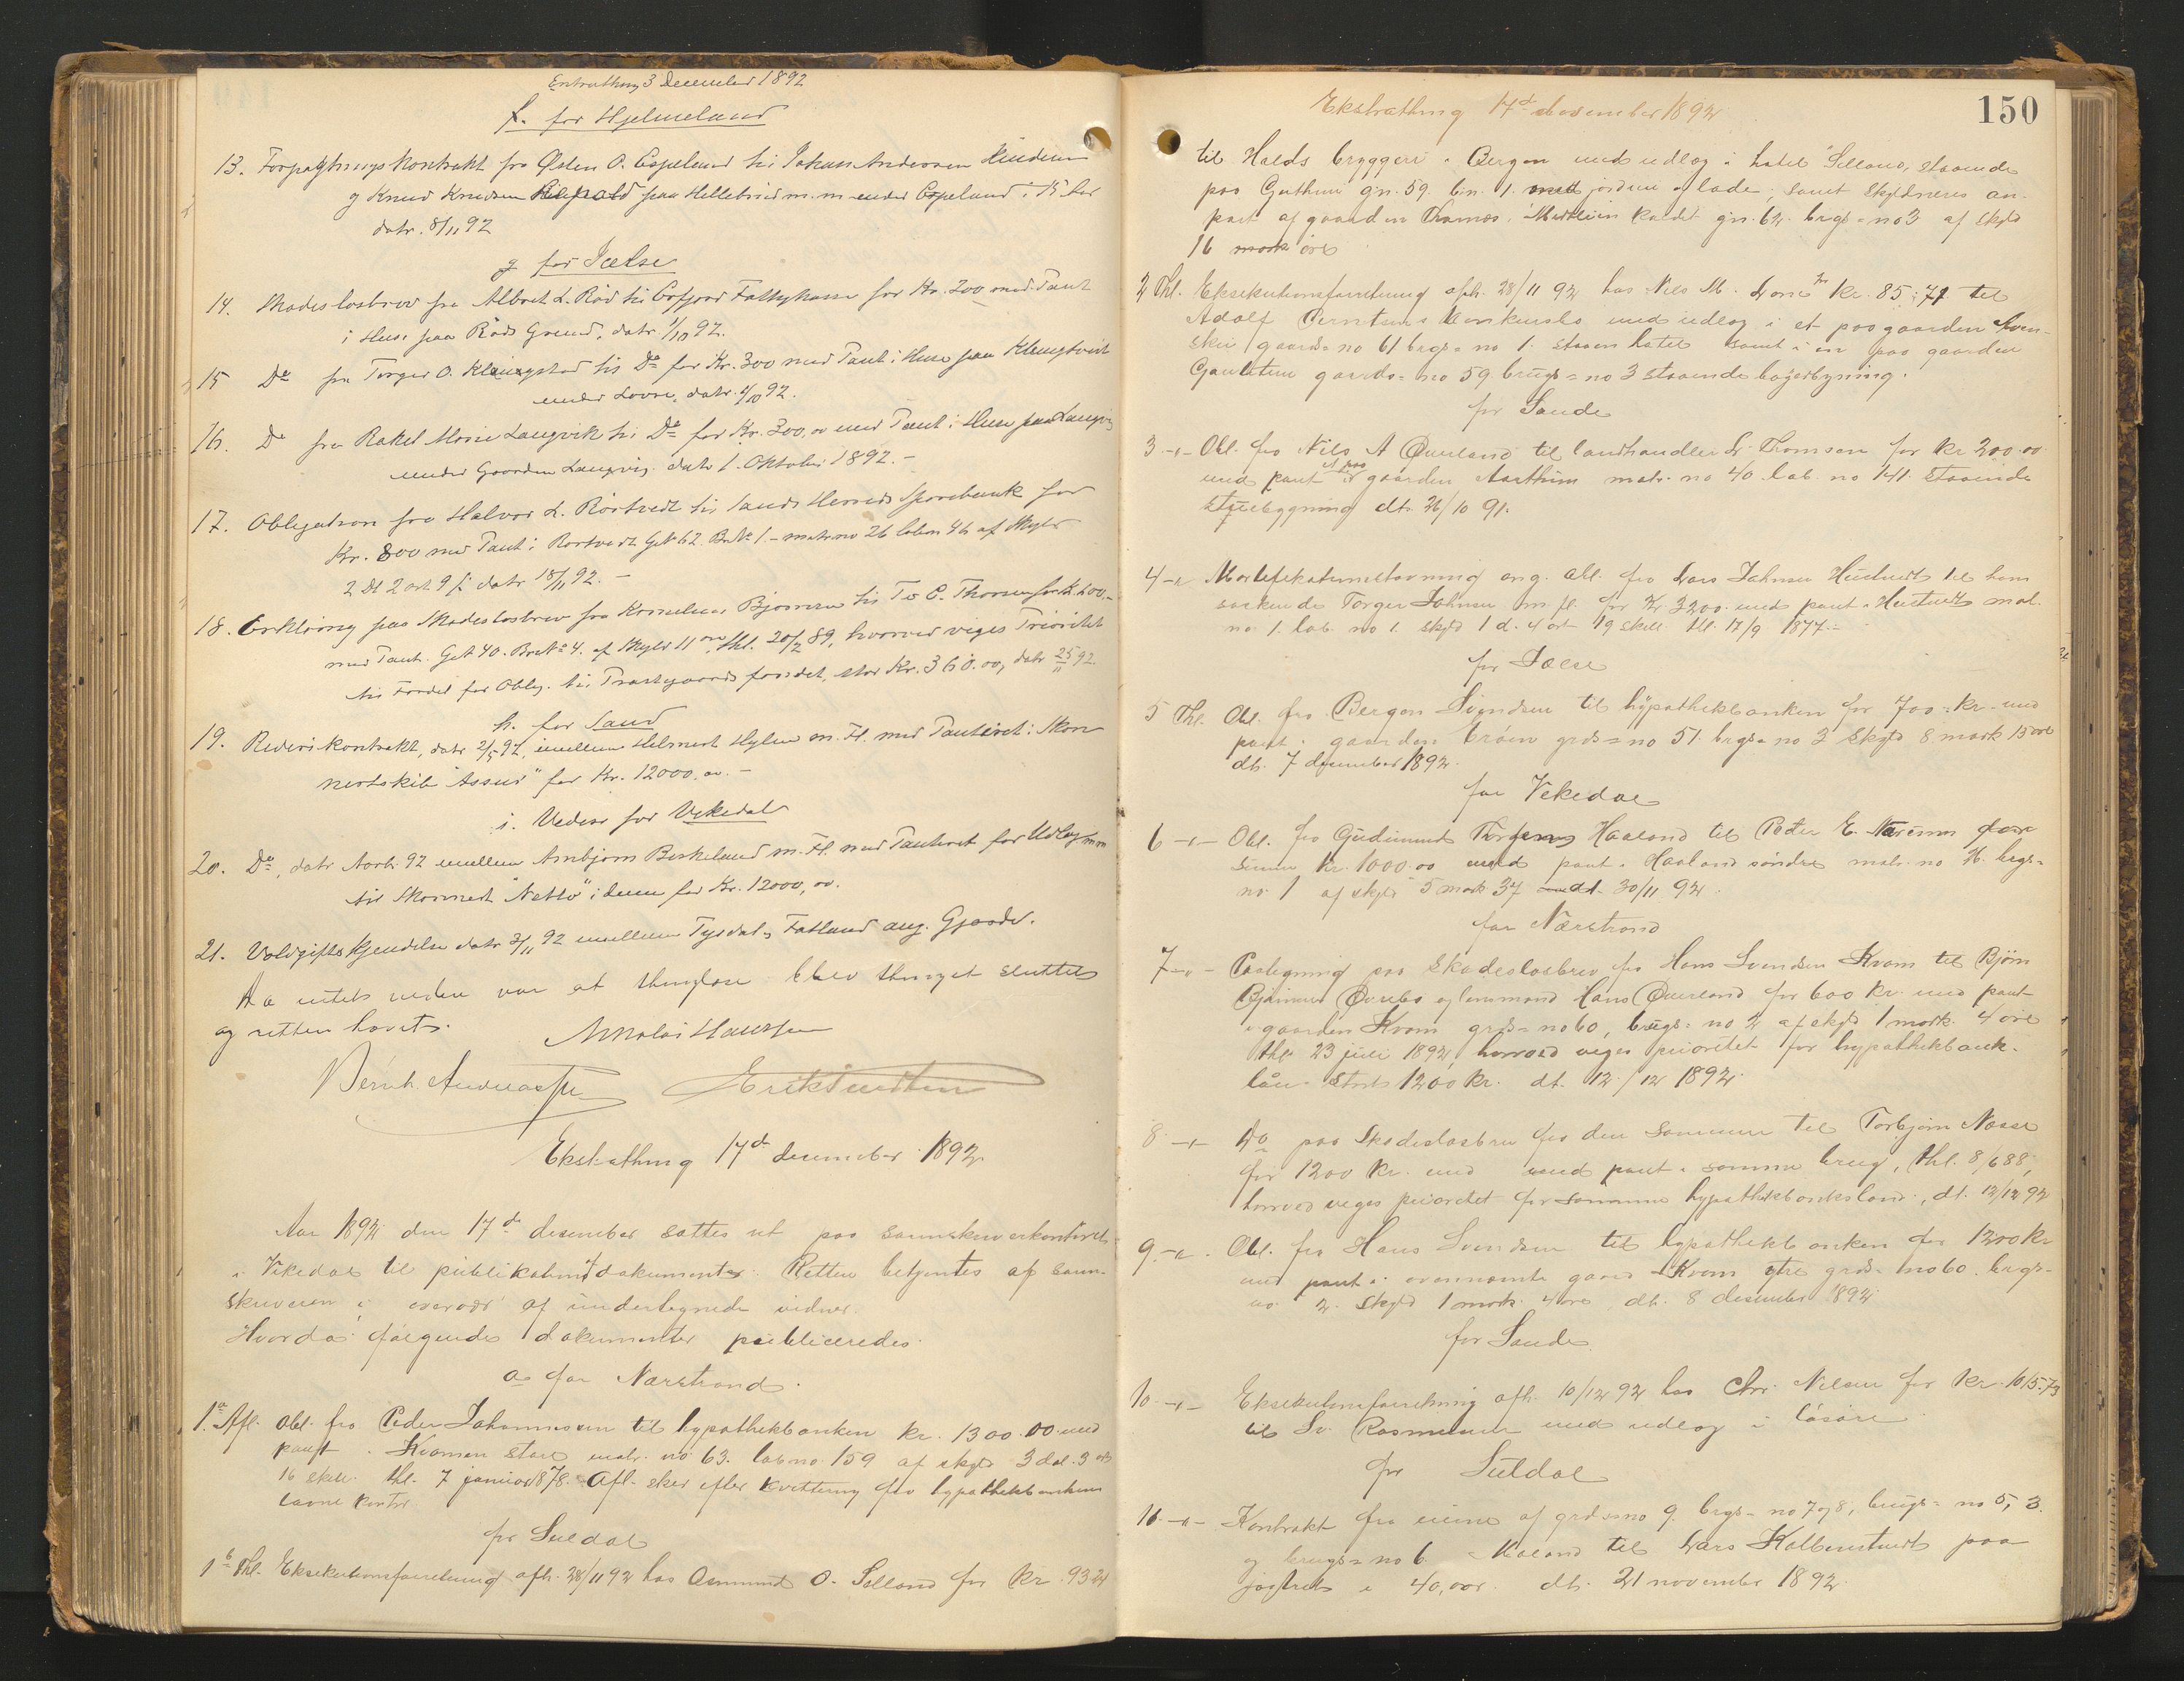 Extrathing 3 December 1892
f. for Hjelmeland
13. Forpagtningskontrakt fra Østen O. Espeland til Johan Andersen
og Knud Knudsen paa Hellebrud m. m. under Espeland i 15 Aar
datr. 8/11 92
g for Jælse
14. Skadesløsbrev fra Albret L. Röd til Erfjord Fattigkasse for Kr. 200 med Pant
i Huse paa Röds Grund, datr. 1/10 92.
15 Do fra Torger O. Klungtvedt til Do for Kr. 300 med Pant i Huse paa Klungtveit
under Lovre, datr. 4/10 92.
16. Do fra Rakel Marie Langvik til Do for Kr. 300,00 med Pant i Huse paa Langvig
under Gaarden Langvig datr 1. Oktober 1892. -
17. Obligation fra Halvor L. Rörtvedt til Sands Herreds Sparebank for
Kr. 800 med Pant i Rörtvedt G.No 62 B.No 1. - matr no 26 løben 46 af Skyld
2 Dl 2 ort 9 ß datr 18/11 92. -
18. Erklæring paa Skadesløsbrev fra Kornelius Bjornsen til T. C. Thorsen for K. 600.-
med Pant. G.No 40. Br.No 4. af Skyld 11 øre, thl. 20/2 89, hvorved viges Prioritet
til Fordel for Oblg. til Præstegaards fondet, stor Kr. 360.00, datr 25/11 92.
h. for Sand
19. Rederikontrakt, datr 2/5 92, imellem Helmert Hylen m. Fl. med Panteret i Skon
nertskib "Assur" for Kr. 12000.00. -
i. Videre for Vikedal
20. Do, datr Aarh. 92 imellem Arnbjørn Birkeland m. Fl. med Panteret for Udlæg
til Skonnert "Netto" i denne for Kr. 12000,00.
21. Voldgiftskjendelse datr 3/11 92 imellem Tysdal & Fatland ang. Gjærde.
Da intet videre var at thinglæse blev thinget sluttet
og retten hævet.
Nikolai Hansen
Bernh. Andreassen Erik Knudsen
Ekstrathing 17de december 1892
Aar 1892 den 17de desember sattes ret paa sorenskriverkontoret
i Vikedal til publikation af dokumenter. Retten betjentes af soren-
skriveren i overvær af underlegnede vidner.
Hvorda følgende dokumenter publiceredes.
a for Nærstrand.
1.a Afl. obl. fra Peder Johannessen til hypothekbanken kr. 1300.00 med
pant i Kvamen store matr. no 63. lab no 159 af skyld 3 dal. 3 ort
16 skill. thl. 7 januar 1878. Afl. sker efter kvittering fra hypothekbankens
laane kontor
for Suldal
1b Thl. Eksekutionsforretning afh. 28/11 92 hos Osmund O. Selland for kr. 93.21
150
Ekstrathing 17de desember 1892
til Halds bryggeri i Bergen med udlæg i hotel Selland, staaende
paa Guthun gn. 59. bn. 1. med jorden og lade; samt skyldneres an-
part af gaarden kaldt gn. 62. brgs=no 3 af skyld
16 mark øre
2 Thl. Eksekutionsforretning afh. 28/11 92 hos Nils M. for kr. 85,71 til
Adolf Berntsens konkursbo med udlæg i et paa gaarden
gaards=no 61 brgs=no 1. staaende hotel samt i en paa gaarden
gaards=no 59 brugs=no 3 staaende bagerbygning.
for Sande
3 -"- Obl. fra Nils A Øverland til landhandler Sv. Thomsen for kr 200.00
med pant i et paa gaarden Aarthun matr. no 40 lab. no 141. staaende
stuebygning dt. 26/10 91.
4 -"- Mortifikationsstævning ang. obl. fra Lars Johnsen Hustvedt til hans
søskende Torger Johnsen m. fl. for kr 3200 med pant i Hustvedt mat.
no 1. lab. no 1. skyld 1 d. 4 ort 19 skill. thl. 17/9 1877.-
for Jælse
5 Thl. Obl. fra Berge Svendsen til hypothekbanken for 700=kr= med
pant i gaarden brøen grds=no 51. brgs=no 3 skyld 8 mark 15 øre
dt. 7 desember 1892.
for Vikedal
6 -"- Obl. fra Gudmund Haaland til Peder E. for
sum kr. 1000.00 med pant i Haaland søndre matr. no 76. brgs=
no 1 af skyld 5 mark 37 dt. 30/11 92.
for Nærstrand
7 -"- Paategning paa skadesløsbrev fra Hans Svendsen Kvam til Bjørn
Bjørnsen Øvrebø og lensmand Hans Øverland for 600 kr. med pant
i gaarden Kvam grds=no 60, brugs=no 2 af skyld 1 mark 4 øre
thl. 23 juli 1892, hvorved viges prioritet for hypothekbank-
laan stort 1200 kr. dt. 12/12 1892.
8 -"- Do paa skadesløsbrev fra den samme til Torbjørn Næsse
for 1200 kr. med med pant i samme brug, thl. 8/6 88,
hvorved viges prioritet for samme hypothekbankslaan, dt. 12/12 92
9 -"- Obl. fra Hans Svendsen til hypothekbanken for 1200 kr
med pant i ovennævnte gaard Kvam ytre grds=no 60. brgs=
no 2. skyld 1 mark 4 øre, dt. 8 desember 1892.
for Sande.
10 -"- Eksekutionsforretning afh. 10/12 92 hos Chr. Nilsen for kr. 1015.73
til Sv. Rasmussen med udlæg i løsøre
for Suldal
11 -"- Kontrakt fra eierne af grds=no 9. brgs=no 7 og 8, brugs=no 5, 3.
og brugs=no 6. Moland til Lars Kolbenstvedt paa
jagtret i 40,aar. dt. 21 november 1892